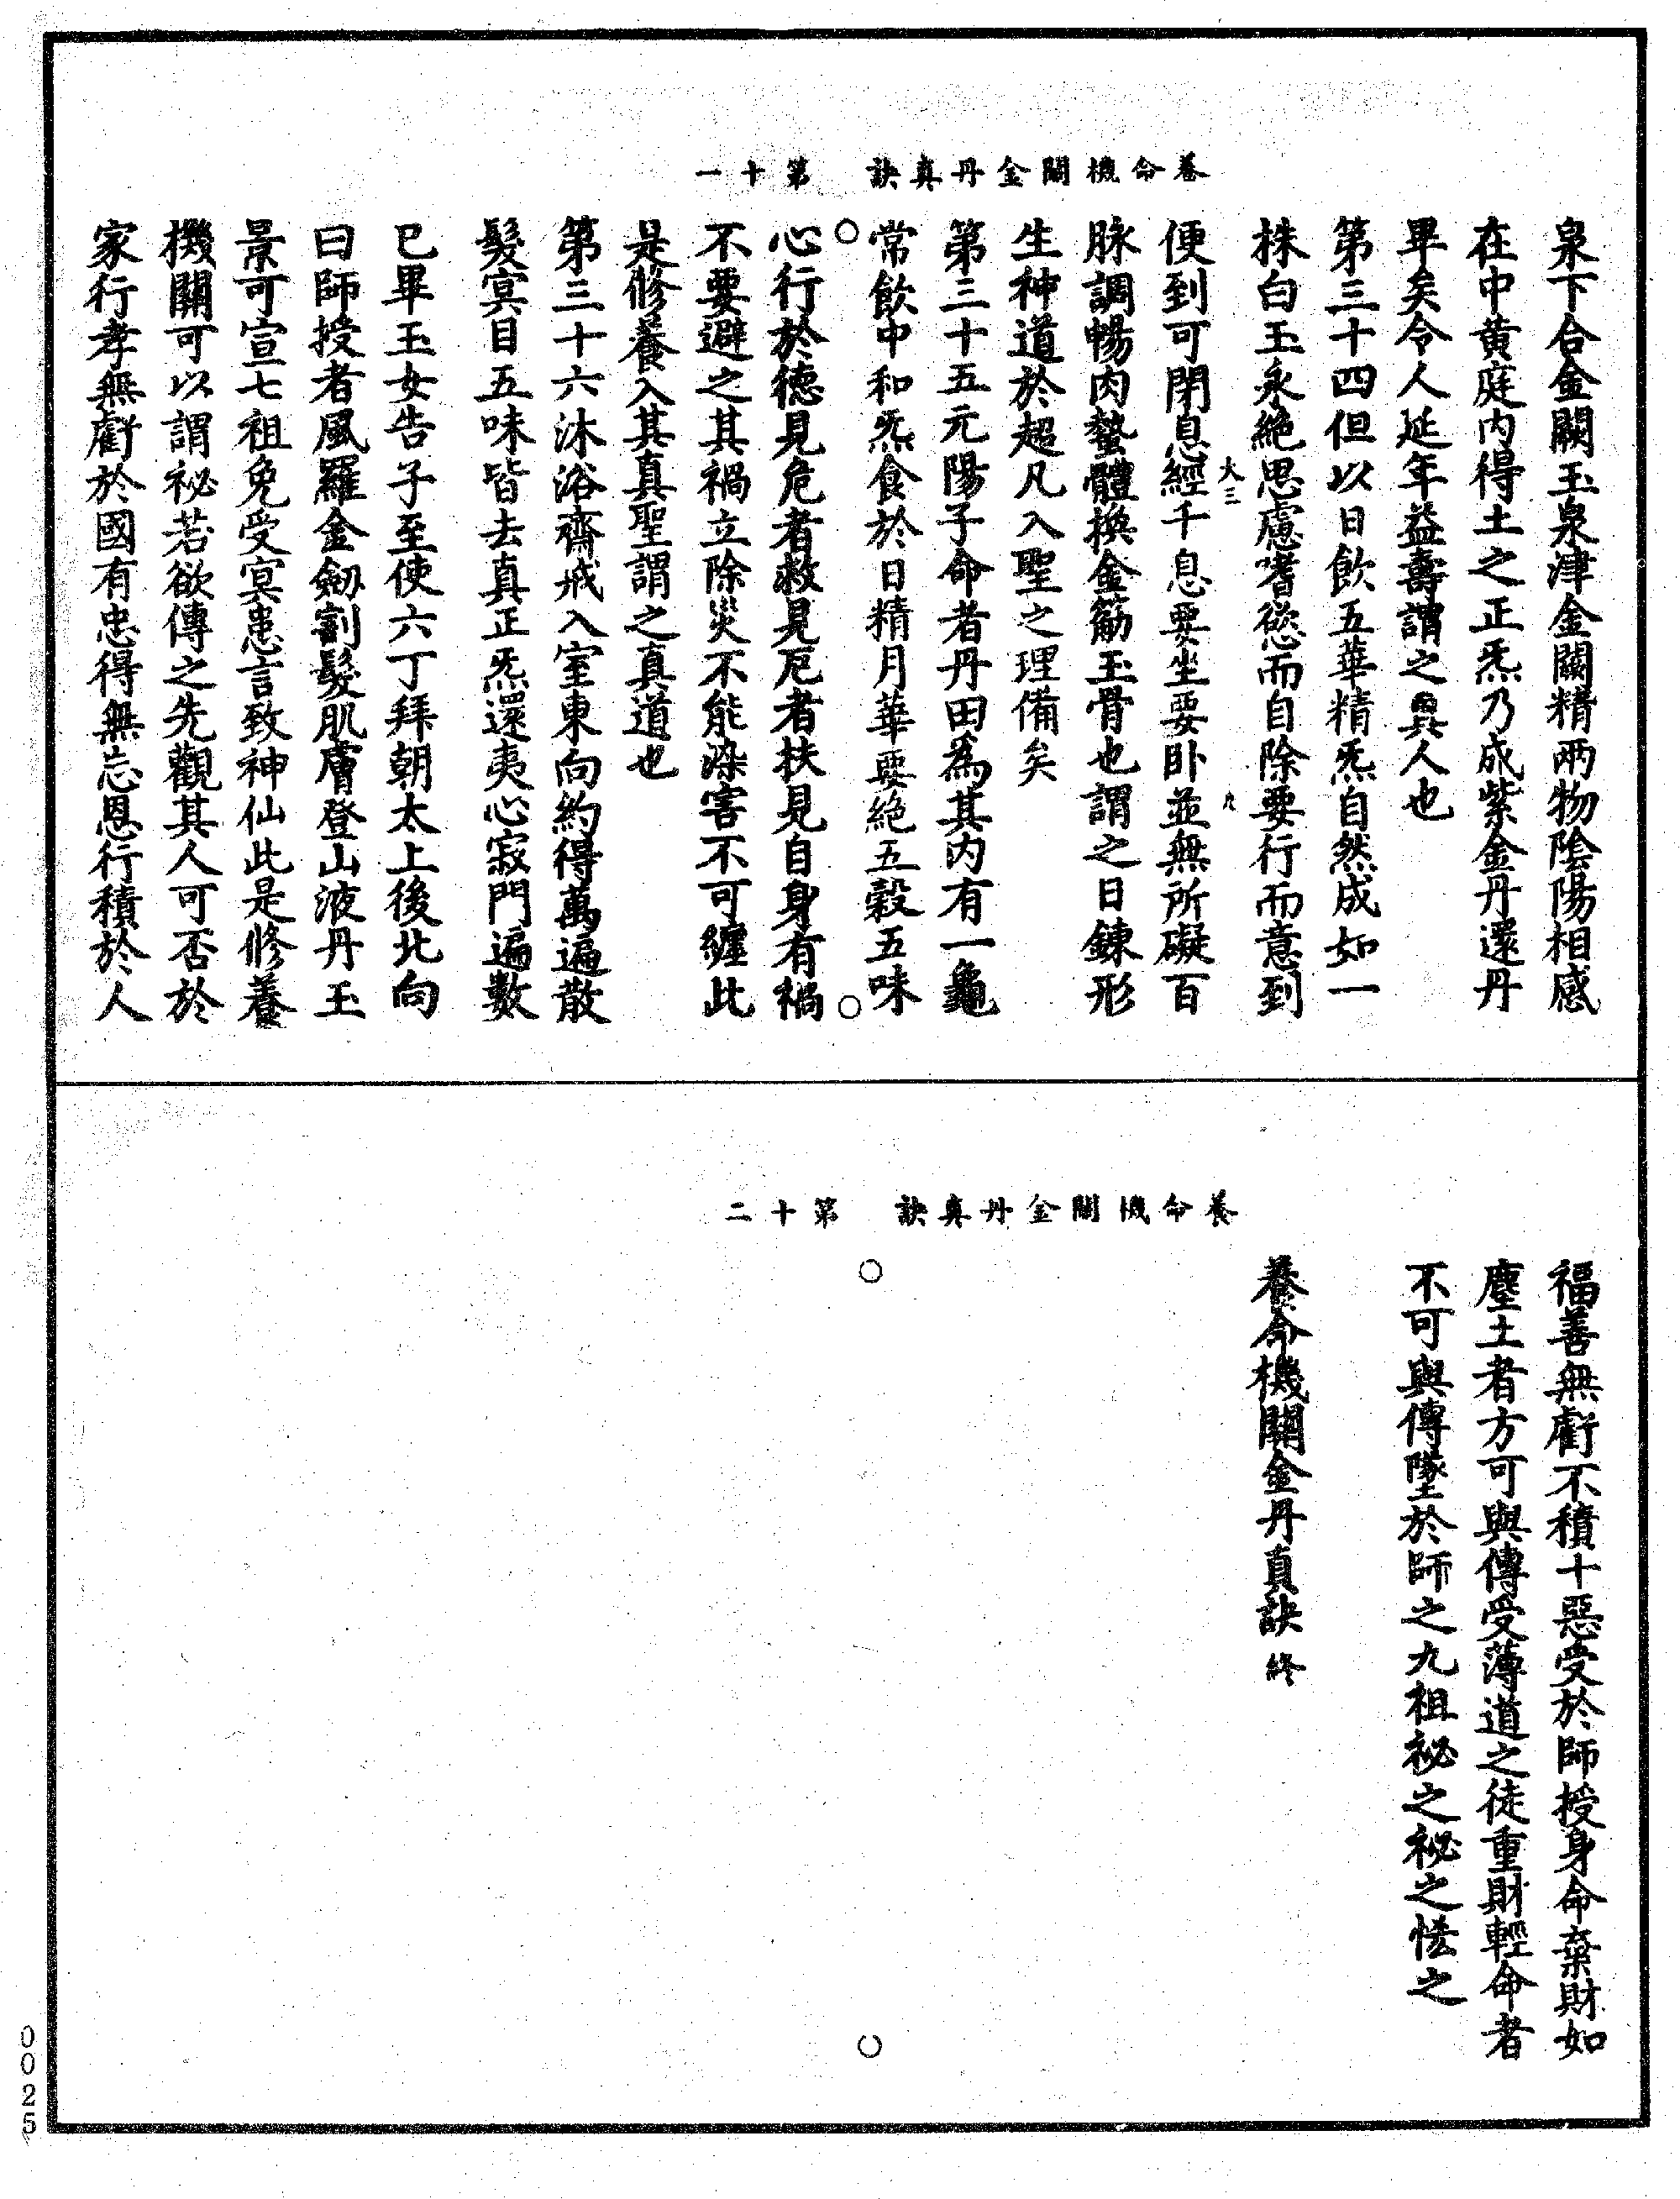 養命機關金丹真訣 第十一
泉下合金闕玉泉津金關精兩物陰陽相感
在中黃庭內得土之正炁乃成紫金丹還丹
畢矣令人延年益壽謂之異人也
第三十四但以日飲五華精炁自然成如一
株白玉永絕思慮嗜慾而自除要行而意到
大三
九
便到可閉息經千息要坐要卧並無所礙百
脉調暢肉蟄體換金筋玉骨也謂之日鍊形
生神道於超凡入聖之理備矣
第三十五元陽子命者丹田為其內有一龜
常飲中和炁食於日精月華要絕五穀五味
心行於德見危者救見厄者扶見自身有禍
不要避之其禍立除災不能染害不可纏此
是修養入其真聖謂之真道也
第三十六沐浴齊戒入室東向約得萬遍散
髮冥目五味皆去真正炁還夷心寂門遍數
已畢玉女告子至使六丁拜朝太上後北向
曰師授者風羅金劒割髮肌膚登山液丹玉
景可宣七祖免受冥患言致神仙此是修養
機關可以謂祕若欲傳之先觀其人可否於
家行孝無虧於國有忠得無忘恩行積於人
養命機關金丹真訣 第十二
福善無虧不積十惡受於師授身命棄財如
塵土者方可與傳受薄道之徒重財輕命者
不可與傳墜於師之九祖祕之祕之恡之
養命機關金丹真訣終
0025